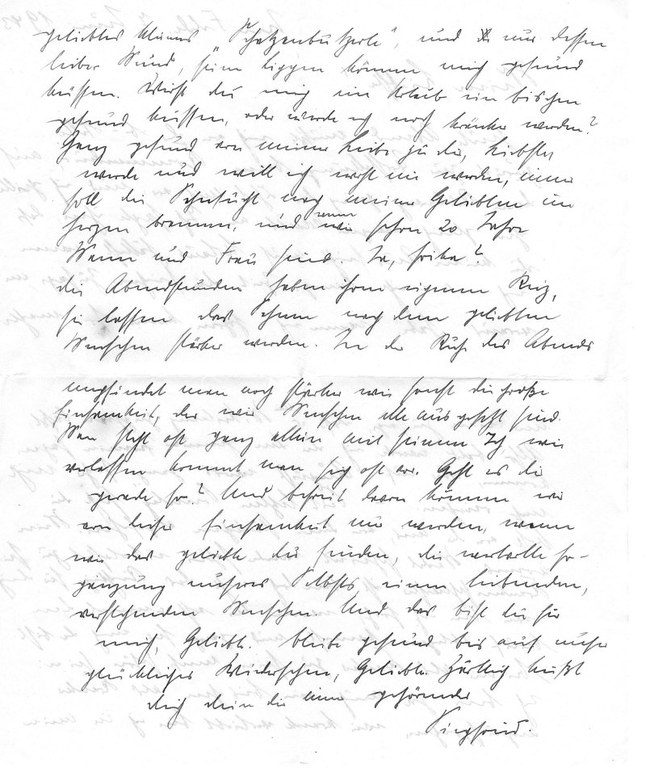 geliebtes kleines "Schatzenbutzerle", und nur dessen
lieber Mund, seine Lippen können mich gesund
küssen. Wirst du mich im Urlaub ein bischen
gesund küssen, oder werde ich noch kränker werden?
Ganz gesund von meiner Liebe zu dir, Liebste,
werde und will ich wohl nie werden, immer
soll die Sehnsucht nach meiner Geliebten im
Herzen brennen, und wenn wir schon 20 Jahre
Mann und Frau sind. Ja, Erika?
Die Abendstunden haben ihren eigenen Reiz,
sie lassen das Sehnen nach dem geliebten
Menschen stärker werden. In der Ruhe des Abends
empfindet man noch stärker wie sonst die große
Einsamkeit, der wir Menschen alle ausgesetzt sind.
Man steht oft ganz allein mit seinem Ich wie
verlassen kommt man sich oft vor. Geht es dir
gerade so? Und befreit davon können wir
von dieser Einsamkeit nur werden, wenn
wir das geliebte Du finden, die wertvolle Er-
gänzung unseres Selbsts einen liebenden,
verstehenden Menschen. Und das bist du für
mich, Geliebte. Bleibe gesund bis auf unser
glückliches Wiedersehen, Geliebte. Zärtlich küßt
dich dein dir immer gehörender
Siegfried.